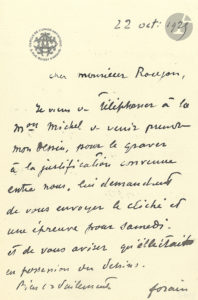 22 oct. 1925
cher monsieur Roujon,
Je viens de téléphoner à la
Mon Michel de venir prendre
mon dessin, pour le graver
à la justification convenue
entre nous, lui demandant
de vous envoyer le cliché et
une épreuve pour samedi.
et de vous aviser qu'elle était
en possession du dessin.
Bien cordialement
forain